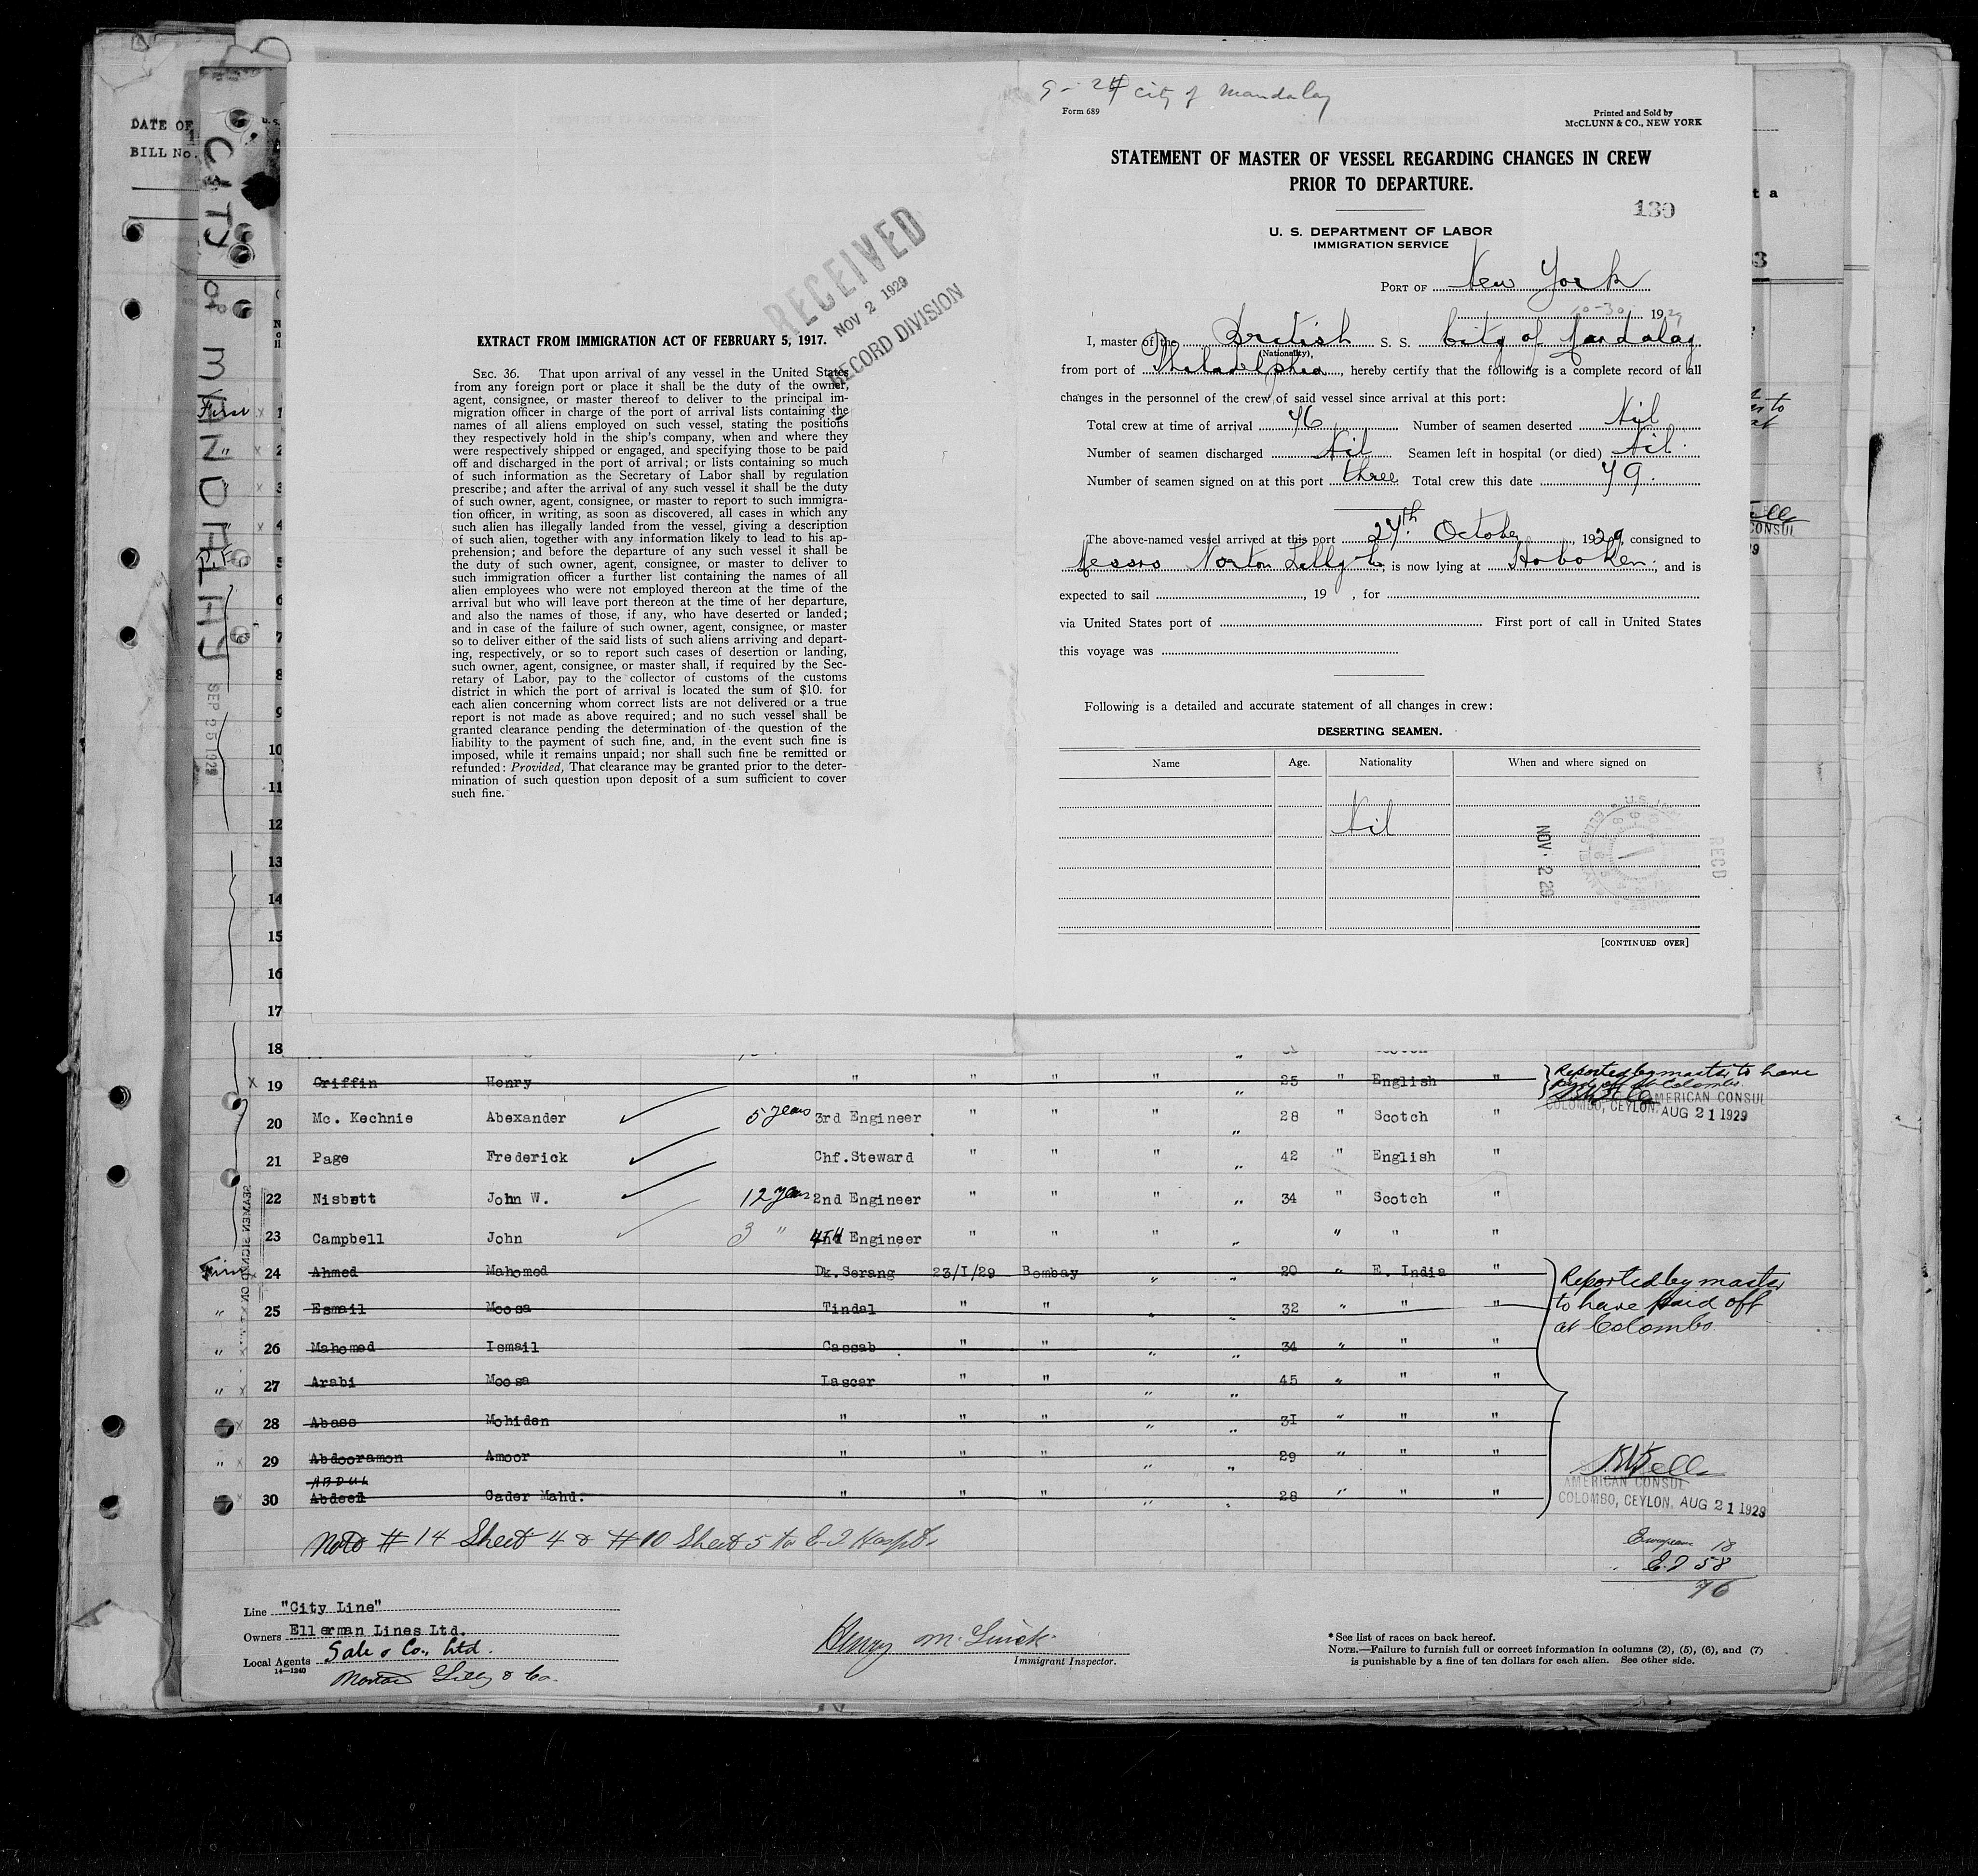 9-24 City of Mandalay
Form 689
Printed and Sold by
McCLUNN & CO., NEW YORK
STATEMENT OF MASTER OF VESSEL REGARDING CHANGES IN CREW
PRIOR TO DEPARTURE.
130
U. S. DEPARTMENT OF LABOR
IMMIGRATION SERVICE
PORT OF New York
10-30 1929
I, master of the British S. S. City of Mandalay
(Nationality),
from port of Philadelphia, hereby certify that the following is a complete record of all
changes in the personnel of the crew of said vessel since arrival at this port:
Total crew at time of arrival 76 Number of seamen deserted Nil
Number of seamen discharged Nil Seamen left in hospital (or died) Nil.
Number of seamen signed on at this port three Total crew this date 79.
The above-named vessel arrived at this port 24th. October, 1929, consigned to
Messrs Norton Lilly & Co, is now lying at Hoboken., and is
expected to sail , 19 , for
via United States port of First port of call in United States
this voyage was
Following is a detailed and accurate statement of all changes in crew:
DESERTING SEAMEN.
Name Age. Nationality When and where signed on
Nil
NOV. 2 29
RECD
[CONTINUED OVER]
RECEIVED
NOV 2 1929
RECORD DIVISION
EXTRACT FROM IMMIGRATION ACT OF FEBRUARY 5, 1917.
SEC. 36. That upon arrival of any vessel in the United States
from any foreign port or place it shall be the duty of the owner,
agent, consignee, or master thereof to deliver to the principal im-
migration officer in charge of the port of arrival lists containing the
names of all aliens employed on such vessel, stating the positions
they respectively hold in the ship's company, when and where they
were respectively shipped or engaged, and specifying those to be paid
off and discharged in the port of arrival; or lists containing so much
of such information as the Secretary of Labor shall by regulation
prescribe; and after the arrival of any such vessel it shall be the duty
of such owner, agent, consignee, or master to report to such immigra-
tion officer, in writing, as soon as discovered, all cases in which any
such alien has illegally landed from the vessel, giving a description
of such alien, together with any information likely to lead to his ap-
prehension; and before the departure of any such vessel it shall be
the duty of such owner, agent, consignee, or master to deliver to
such immigration officer a further list containing the names of all
alien employees who were not employed thereon at the time of the
arrival but who will leave port thereon at the time of her departure,
and also the names of those, if any, who have deserted or landed;
and in case of the failure of such owner, agent, consignee, or master
so to deliver either of the said lists of such aliens arriving and depart-
ing, respectively, or so to report such cases of desertion or landing,
such owner, agent, consignee, or master shall, if required by the Sec-
retary of Labor, pay to the collector of customs of the customs
district in which the port of arrival is located the sum of $10. for
each alien concerning whom correct lists are not delivered or a true
report is not made as above required; and no such vessel shall be
granted clearance pending the determination of the question of the
liability to the payment of such fine, and, in the event such fine is
imposed, while it remains unpaid; nor shall such fine be remitted or
refunded: Provided, That clearance may be granted prior to the deter-
mination of such question upon deposit of a sum sufficient to cover
such fine.
DATE OF
BILL No.
CITY OF MANDALAY
SEP 25 1929
First x 1
" x 2
x 3
x 4
5
6
7
8
9
10
11
12
13
14
15
16
17
18
x 19 Griffin Henry " " " " " 25 " English "
20 Mc. Kechnie Abexander 5 years 3rd Engineer " " " " 28 " Scotch "
21 Page Frederick Chf.Steward " " " " 42 " English "
22 Nisbett John W. 12 years 2nd Engineer " " " " 34 " Scotch "
23 Campbell John 3 " 4TH Engineer " " " " " " "
First 24 Ahmed Mahomed Dk.Serang 23/1/29 Bombay " " 20 " E. India "
" 25 Esmail Moosa Tindal " " " " 32 " " "
" x 26 Mahomed Ismail Cassab " " " " 34 " " "
" x 27 Arabi Moosa Lascar " " " " 45 " " "
x 28 Abass Mohiden " " " " " 31 " " "
" x 29 Abdooramon Amoor " " " " " 29 " " "
ABDUL
x 30 Abdeel Cader Mahd. " " " " " 28 " " "
Reported by master to have
paid off at Colombo.
AMERICAN CONSUL
COLOMBO, CEYLON, AUG 21 1929
Reported by master
to have paid off
at Colombo.
AMERICAN CONSUL
COLOMBO, CEYLON, AUG 21 1929
Note #14 Sheet 4 & #10 Sheet 5 to E.I Hospt.
European 18
E.I 58
76
Line "City Line"
Owners Ellerman Lines Ltd.
Local Agents Sale & Co., Ltd.
14—1240
Norton Lilly & Co.
Immigrant Inspector.
* See list of races on back hereof.
NOTE.—Failure to furnish full or correct information in columns (2), (5), (6), and (7)
is punishable by a fine of ten dollars for each alien. See other side.